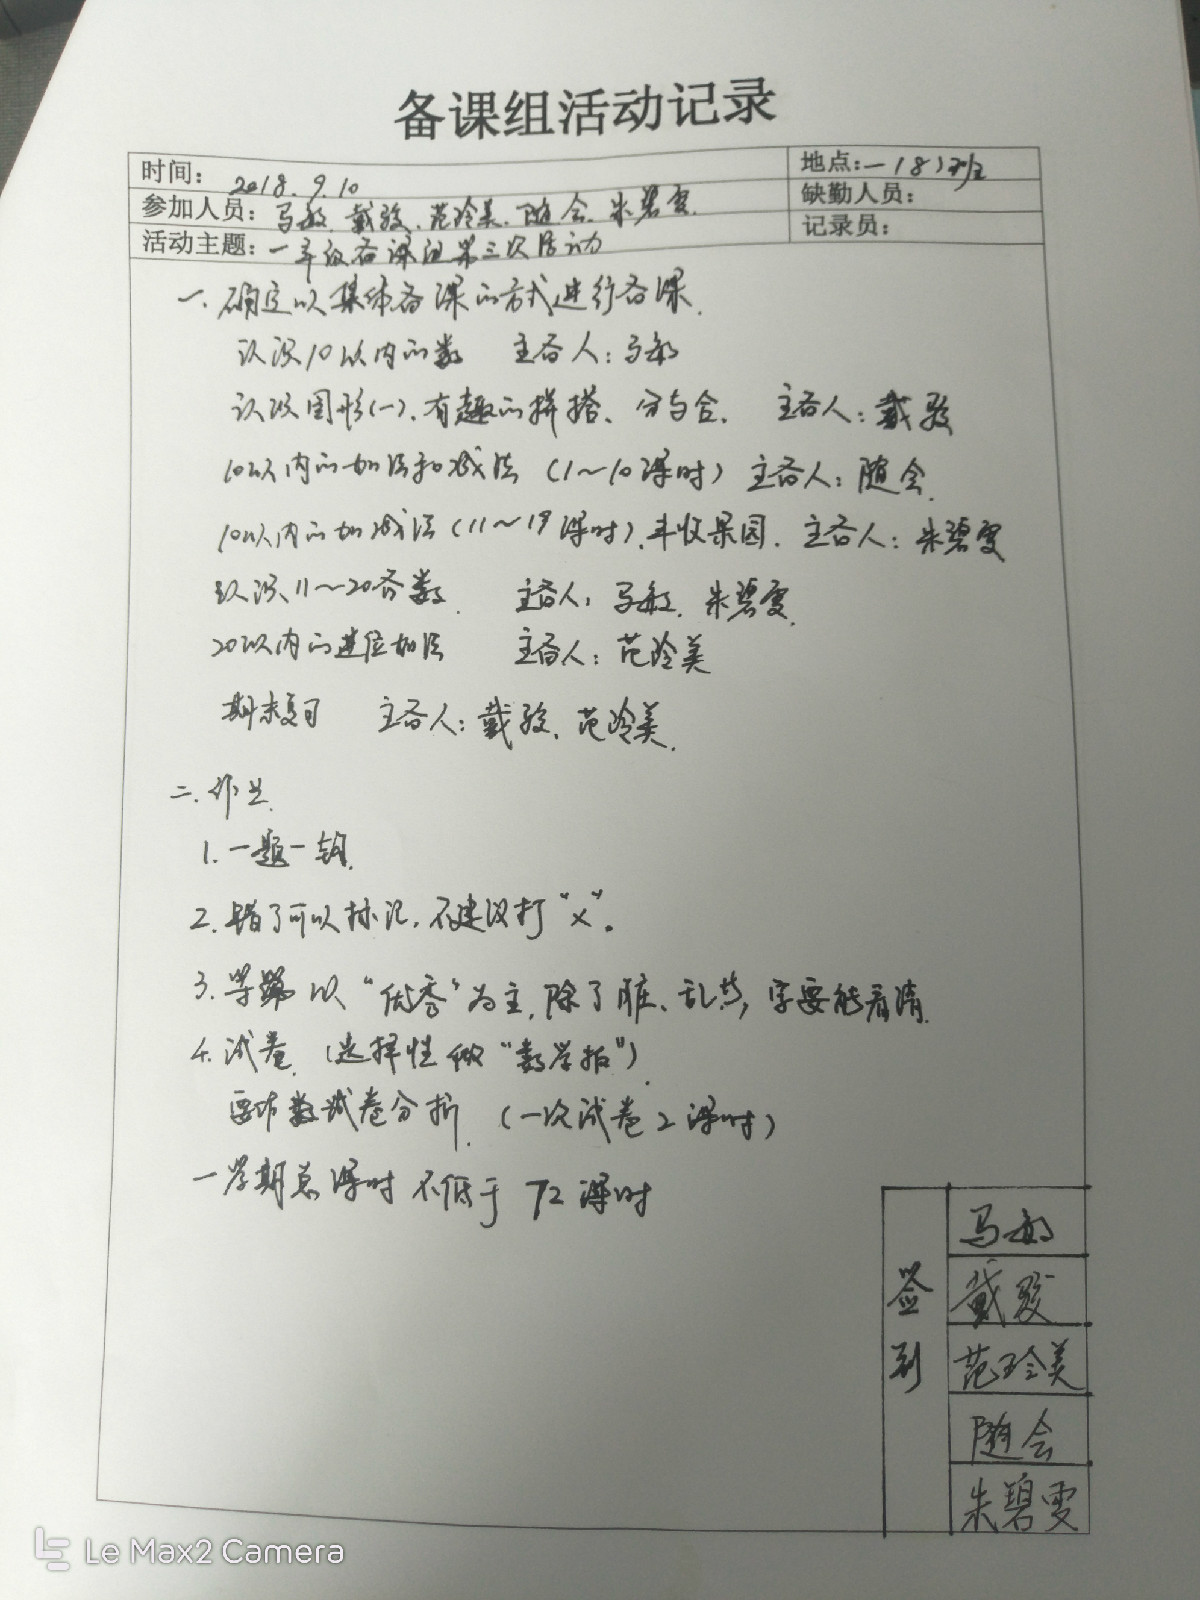 备课组活动记录
时间: 2018.9.10 地点:一(8)班
参加人员: 马敏、戴骏、范玲美、随会、朱碧雯 缺勤人员:
活动主题: 一年级备课组第三次活动 记录员:
一、确定以集体备课的方式进行备课.
认识10以内的数 主备人:马敏
认识图形(一)、有趣的拼搭、分与合. 主备人:戴骏
10以内的加法和减法(1~10课时) 主备人:随会.
10以内的加减法(11~19课时)、丰收果园. 主备人:朱碧雯
认识11~20各数. 主备人:马敏、朱碧雯.
20以内的进位加法 主备人:范玲美
期末复习 主备人:戴骏、范玲美.
二.作业.
1.一题一钩.
2.错了可以标记,不建议打“×”。
3.等第以“优秀”为主,除了脏、乱等,字要能看清.
4.试卷.(选择性做“数学报”).
要有数试卷分析.(一次试卷2课时)
一学期总课时不低于72课时
签到
马敏
戴骏
范玲美
随会
朱碧雯
Le Max2 Camera